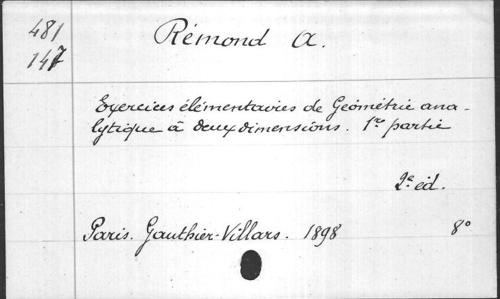 481
147
Rémond A.
Exercices élémentaires de Géométrie ana-
lytique à deux dimensions. 1re partie
2e éd.
Paris. Gauthier-Villars. 1898 8°